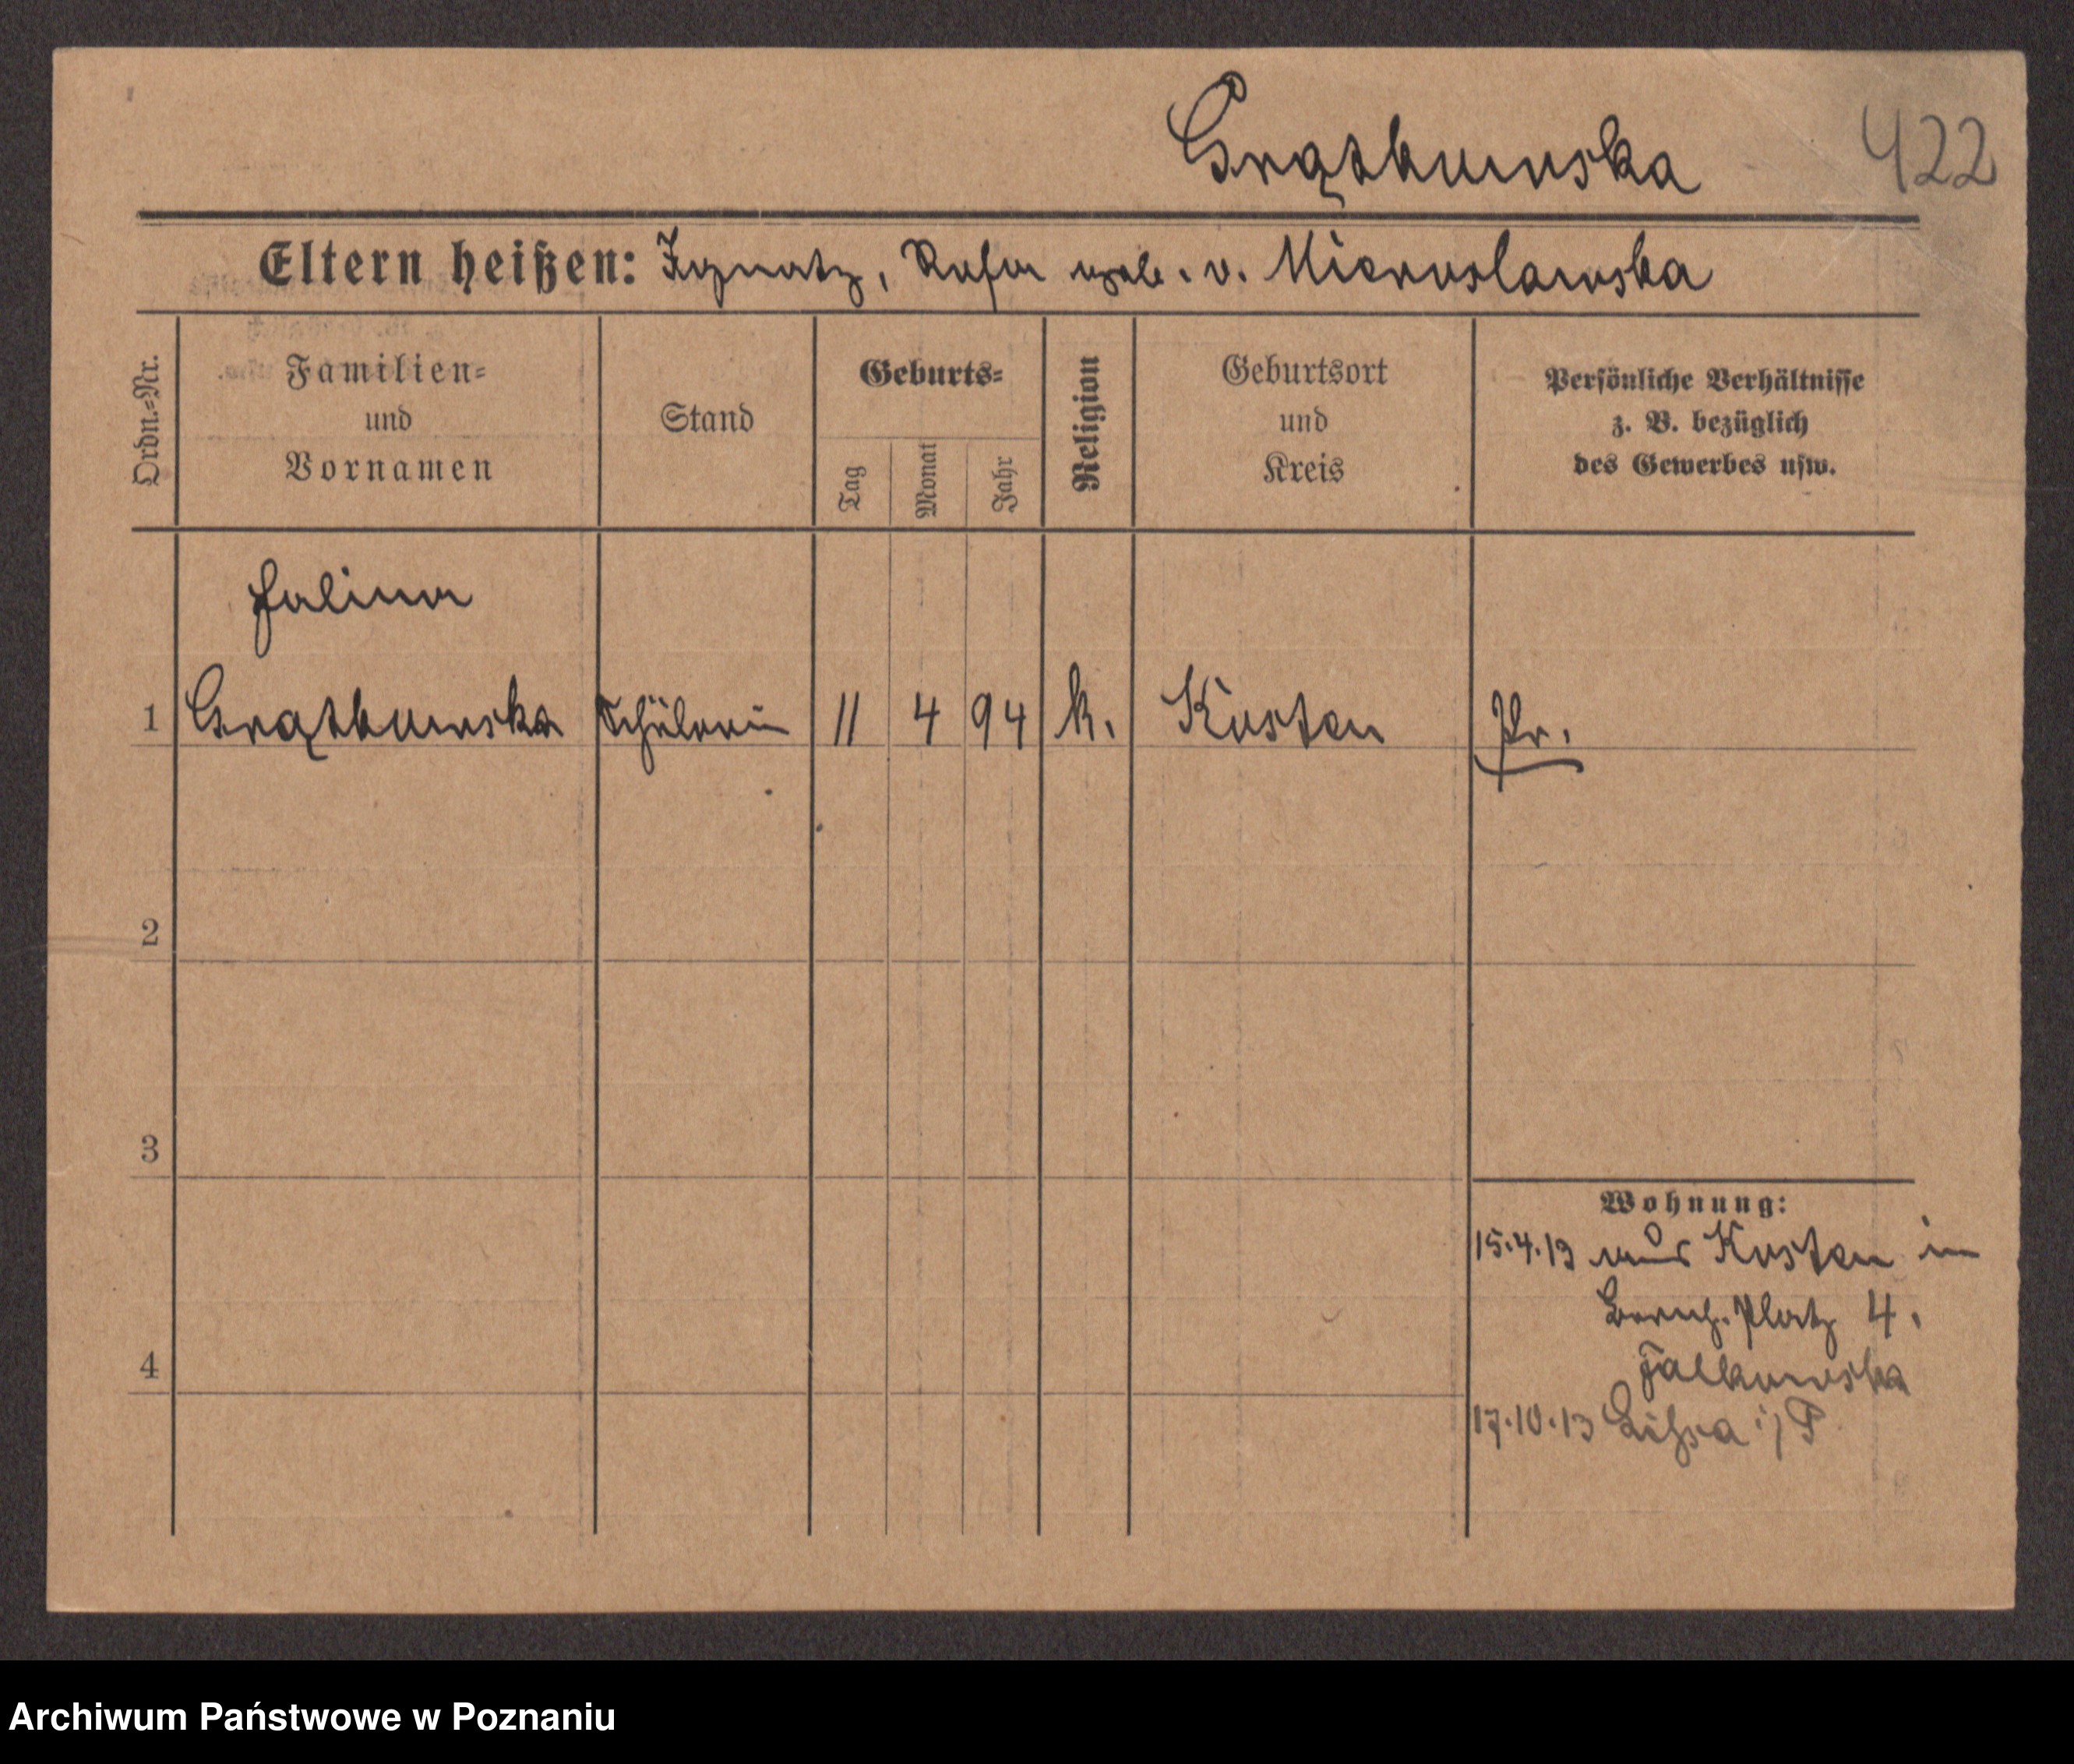 Grątkowska 422
Eltern heißen: Ignatz, Rosa geb. v. Mieroslawska
Ordn.=Nr.
Familien=
und
Vornamen
Stand
Geburts=
Tag
Monat
Jahr
Religion
Geburtsort
und
Kreis
Persönliche Verhältnisse
z. B. bezüglich
des Gewerbes usw.
Halina
1 Grątkowska Schülerin 11 4 94 k. Kosten Pr.
2
3
4
Wohnung:
15.4.13 aus Kosten in
Platz 4.
Falkowska
17.10.13 Lissa i/P
Archiwum Państwowe w Poznaniu